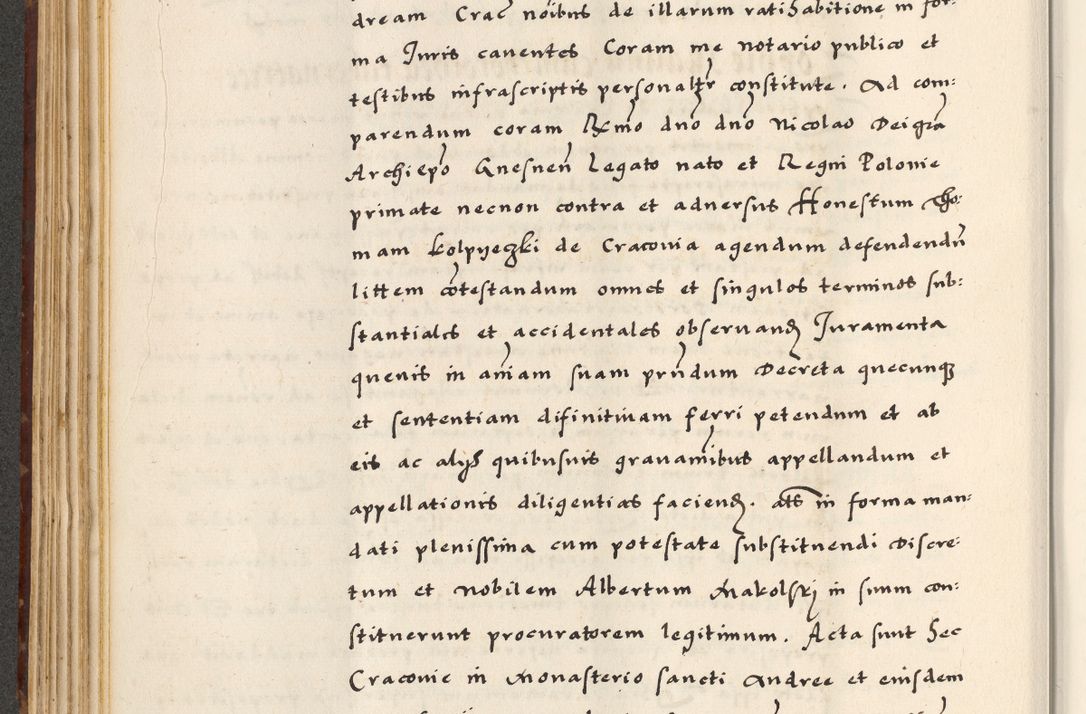 dream Crac noibus de illarum ratihabitione in for-
ma Juris caventes Coram me notario publico et
testibus infrascriptis personaltr constitute. Ad com:
parendum coram Rmo dno dno Nicolao Dei gra
Archiepo Gnesnen Legato nato et Regni Polonie
primate necnon contra et adversus Honestum Tho:
mam Kolpyeczki de Cracovia agendum defendendu
littem cotestandum omnes et singulos terminos sub:
stantiales et accidentales observand Juramenta
quevis in aniam suam prndum Decreta quecunq
et sententiam difinitivam ferri petendum et ab
eis ac alijs quibusvis gravaminibus appellandum et
appellationis diligentias faciend. als in forma man:
dati plenissima cum potestate substituendi Discre:
tum et nobilem Albertum Makolski in suum con:
stituerunt procuratorem legitimum. Acta sunt hec
Cracovie in Monasterio sancti Andree et eiusdem